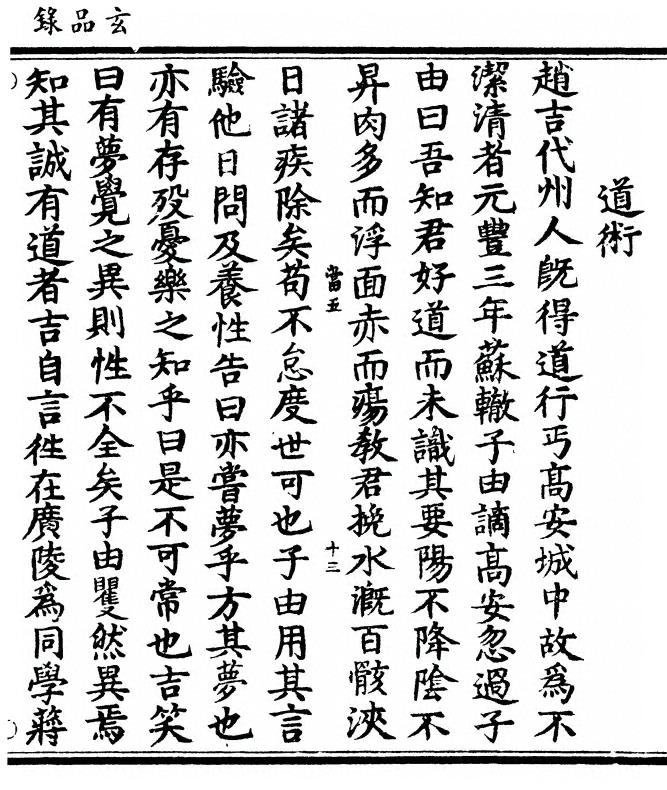 玄品錄
道術
趙吉代州人旣得道行丐髙安城中故爲不
潔清者元豐三年蘇轍子由謫髙安忽過子
由曰吾知君好道而未識其要陽不降陰不
昇肉多而浮面赤而瘍教君挽水漑百骸浹
當五
十三
日諸疾除矣苟不怠度世可也子由用其言
驗他日問及養性告曰亦嘗夢乎方其夢也
亦有存殁憂樂之知乎曰是不可常也吉笑
曰有夢覺之異則性不全矣子由瞿然異焉
知其誠有道者吉自言徃在廣陵爲同學蔣